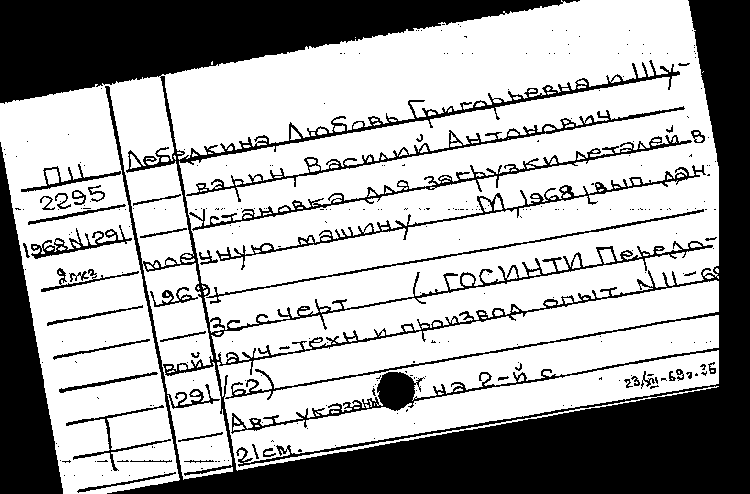 Лебедкина, Любовь Григорьевна и Шу-
варин, Василий Антонович.
Установка для загрузки деталей в
моечную машину М, 1968 [вып. дан.
1969]
3с. с черт (... ГОСИНТИ Передо-
вой науч-техн и производ опыт. N 11-68
1291/62)
Авт указаны на 2-й с.
21см.
П11
2295
1968N1291
2экз.
23/XII-69г. 35